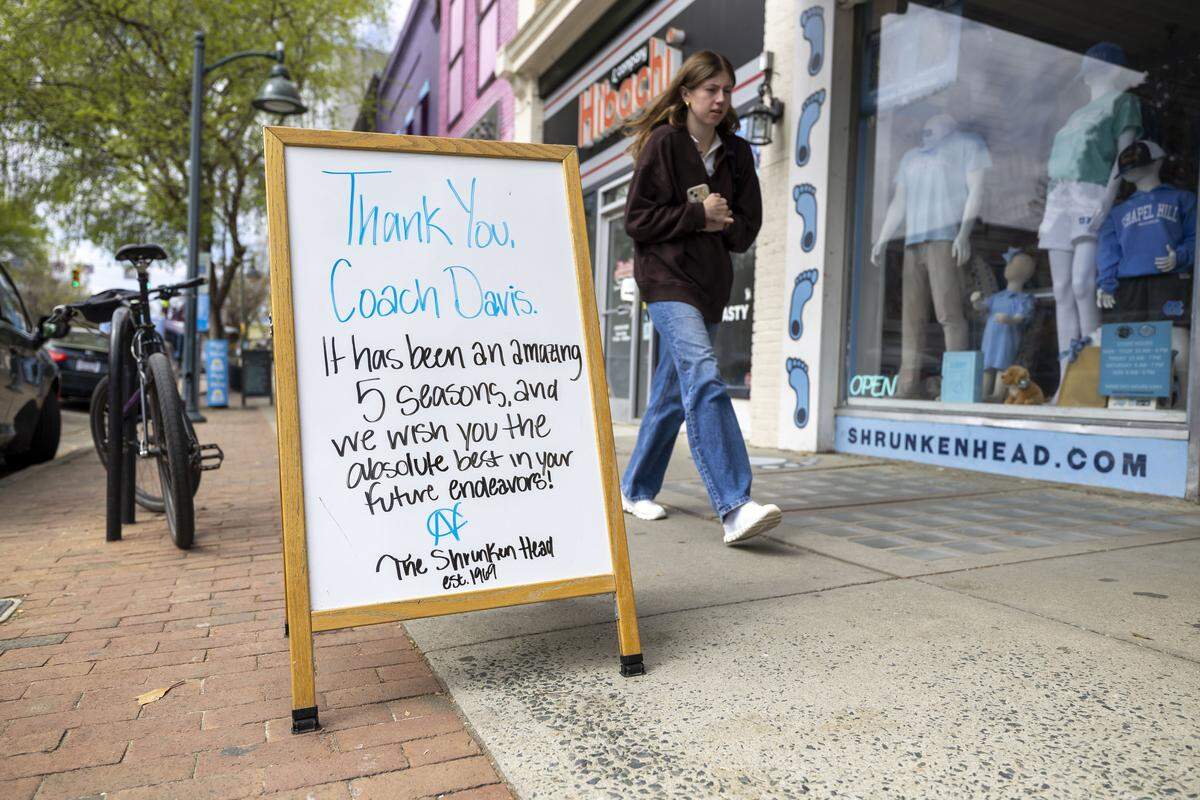 Thank You,
Coach Davis.
It has been an amazing
5 seasons, and
we wish you the
absolute best in your
future endeavors!
NC
The Shrunken Head
est. 1969
& company
Hibachi
ASTY
CHAPEL HILL
OPEN
SHRUNKENHEAD.COM